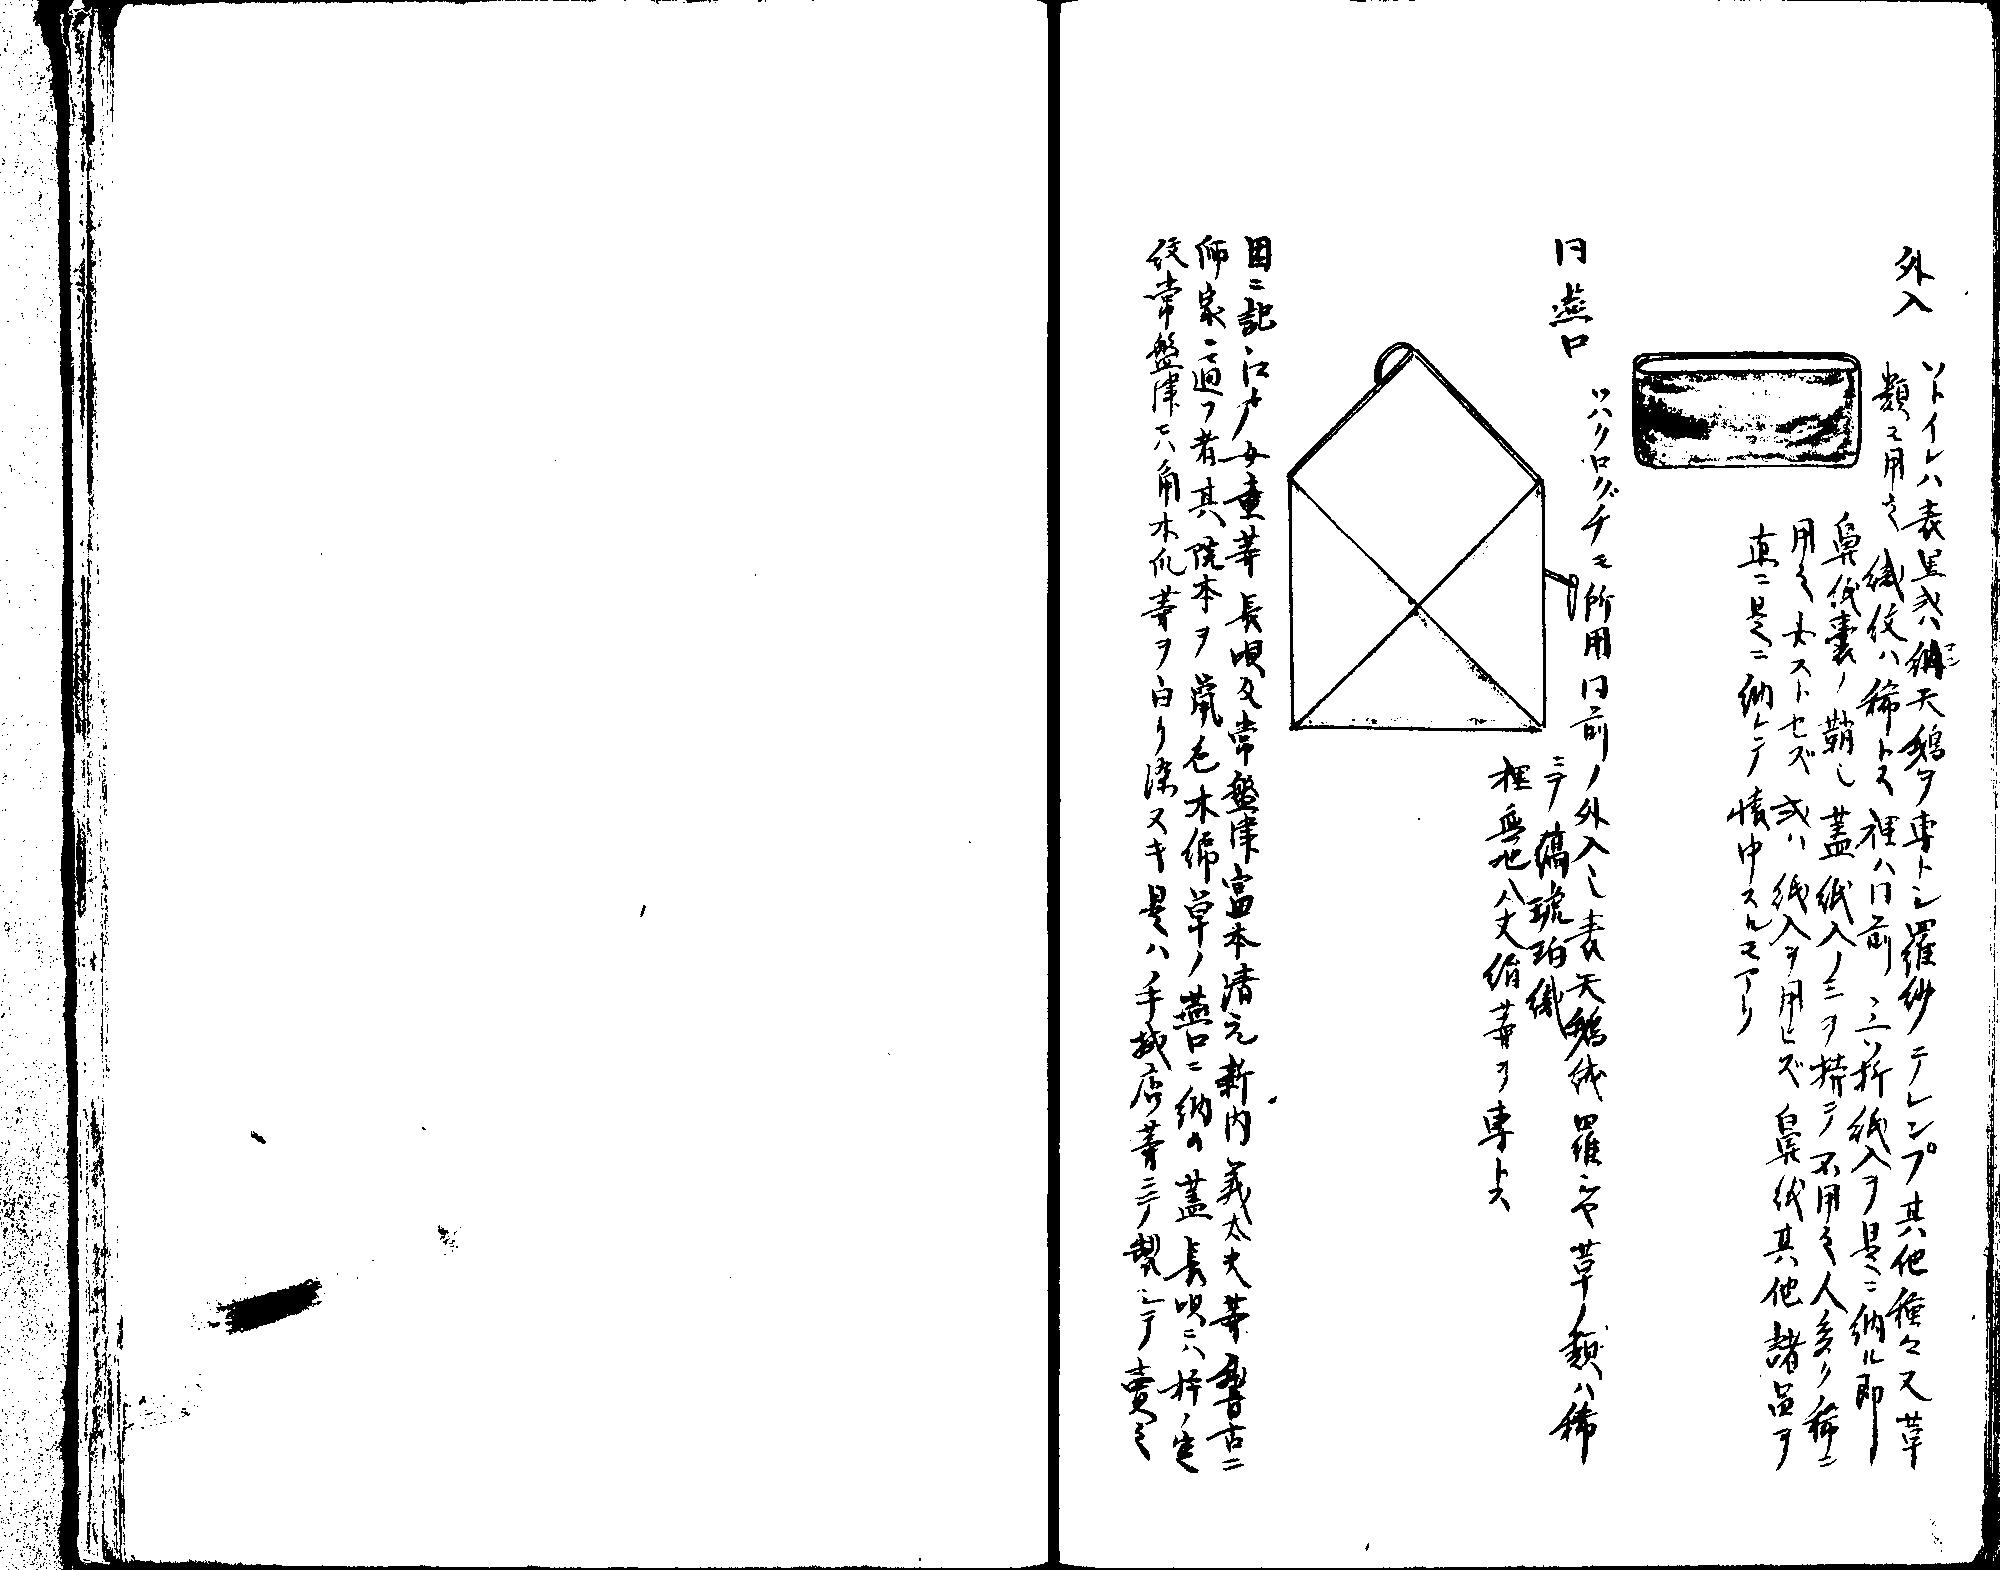 外入
ソトイレハ表黒或ハ納天鵝ヲ専トシ羅紗テレンプ其他種々又草
類モ用之織紋ハ稀トス裡ハ同前ニ三ツ折紙入ヲ是ニ納ル即
鼻紙嚢ノ鞘也蓋紙入ノミヲ携テ不用之人多ク稀ニ
用之女ストセズ或ハ紙入ヲ用ヒズ鼻紙其他諸品ヲ
直ニ是ニ納レテ懐中スルモアリ
同燕口
ツハクログチモ所用同前ノ外入也表天鵝絨羅シヤ草ノ類ハ稀
ニテ縞琥珀織
裡無地八丈絹等ヲ専トス
因ニ記江戸ノ女童等長唄及常盤津富本清元新内義太夫等習古ニ
師家ニ通フ者其院本ヲ萠毛木綿草ノ燕口ニ納ル蓋長唄ニハ杵ノ定
紋常盤津ニハ角木瓜等ヲ白リ染ヌキ是ハノ手拭店等ニテ製シテ賣之